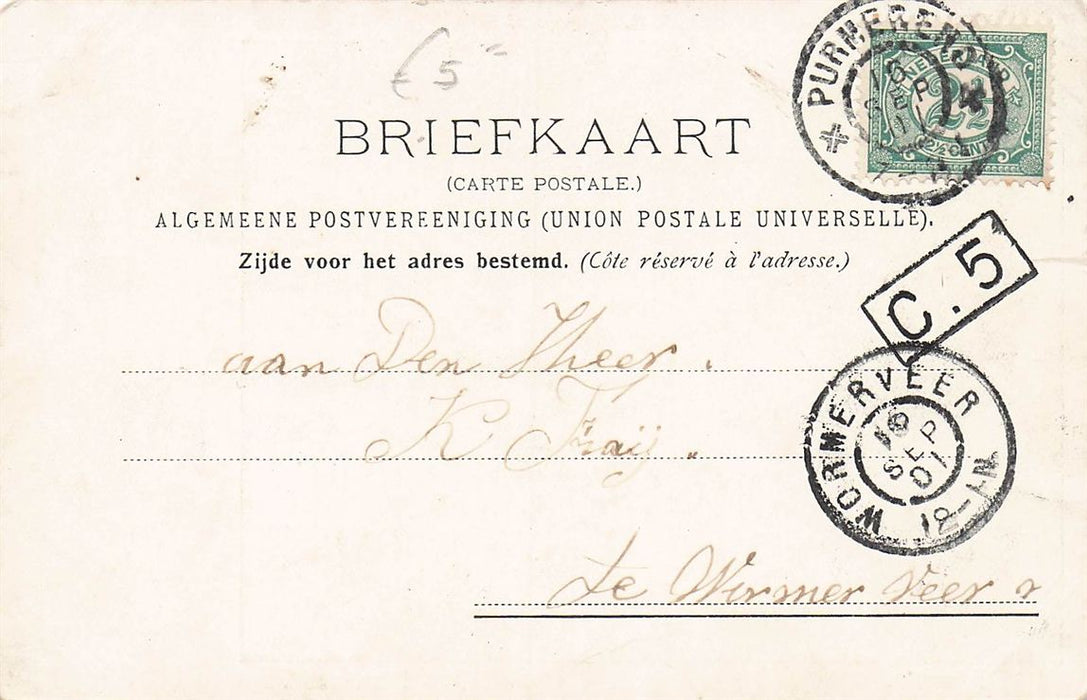 £ 5"
PURMEREND
16
SEP
NEDERLAND
2½
2½ CENT
BRIEFKAART
(CARTE POSTALE.)
ALGEMEENE POSTVEREENIGING (UNION POSTALE UNIVERSELLE).
Zijde voor het adres bestemd. (Côte réservé à l'adresse.)
C. 5
aan Den Heer.
WORMERVEER
16
SEP
01
12-1N.
K Fraij "
te Wirmer Veer